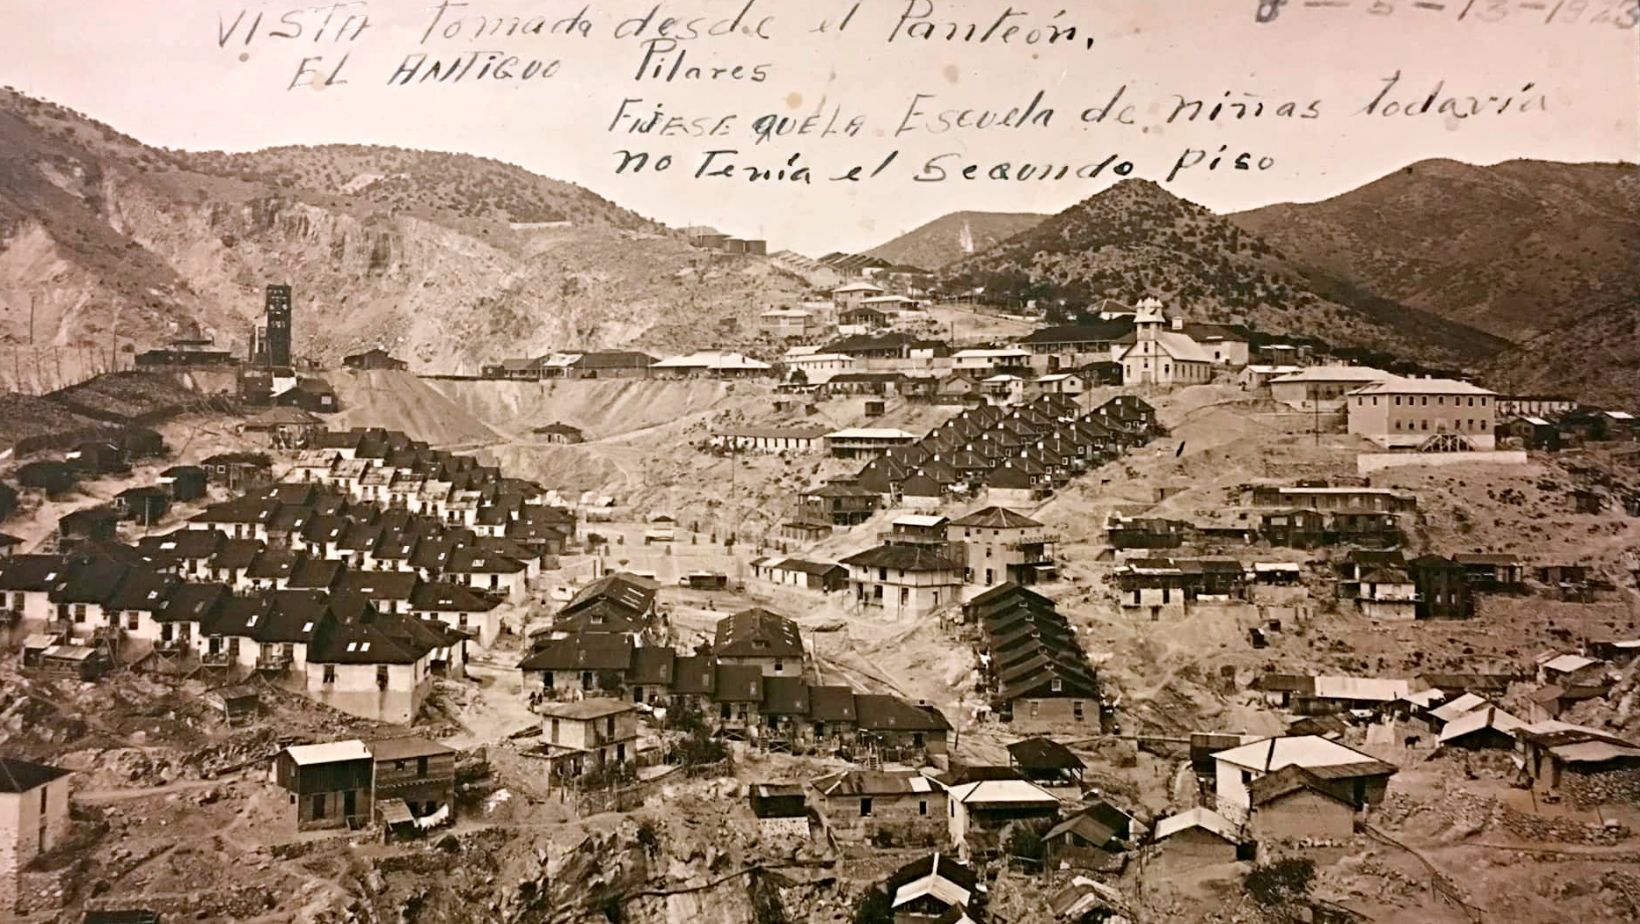 VISTA tomada desde el Panteón,
8-5-13-1923
EL ANTIGUO Pilares
FIJESE QUE LA Escuela de niñas todavía
no Tenía el Segundo piso